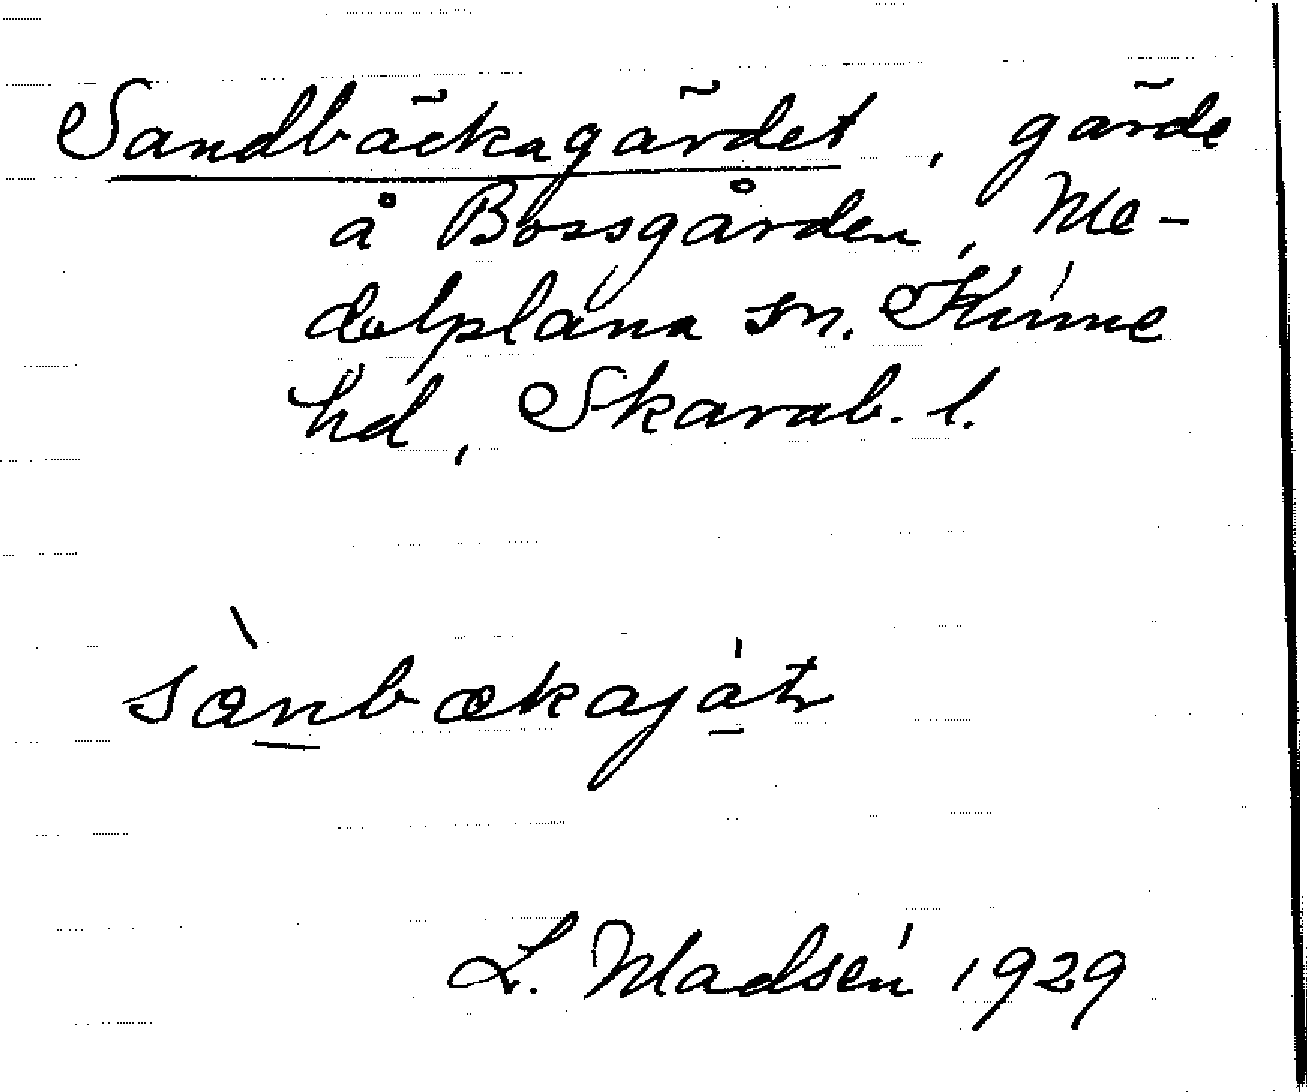 Sandbäckagärdet, gärde
å Bossgården, Me-
delplana sn. Kinne
hd, Skarab. l.
L. Madsén 1929